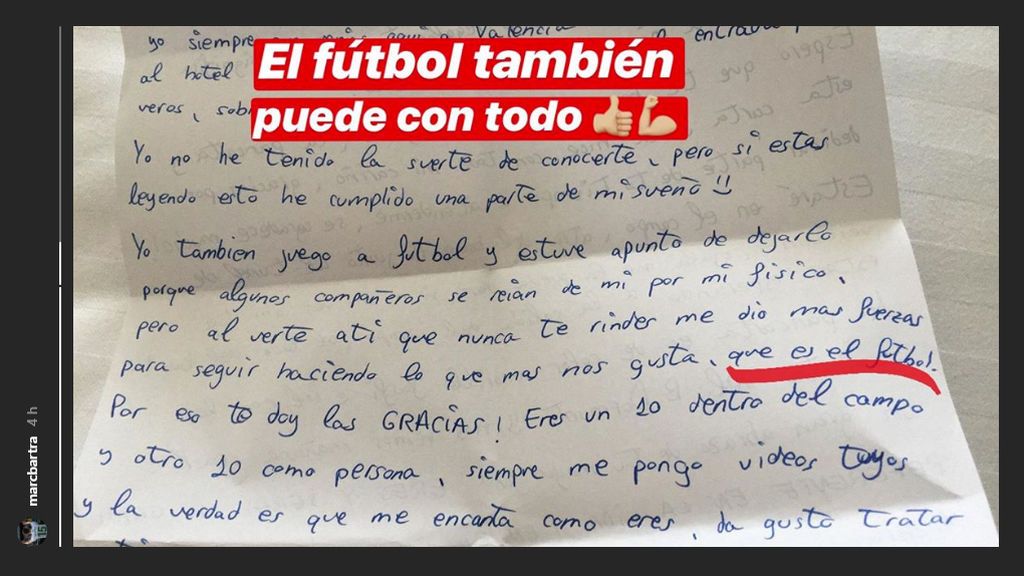 yo siempre aqui a Valencia entrada
al hotel
veros, sob
El fútbol también
puede con todo 👍🏼💪🏼
Yo no he tenido la suerte de conocerte, pero si estas
leyendo esto he cumplido una parte de mi sueño !!
Yo tambien juego a futbol y estuve apunto de dejarlo
porque algunos compañeros se reian de mi por mi fisico,
pero al verte ati que nunca te rindes me dio mas fuerzas
para seguir haciendo lo que mas nos gusta, que es el futbol.
Por eso te doy las GRACIAS! Eres un 10 dentro del campo
y otro 10 como persona, siempre me pongo videos tuyos
y la verdad es que me encanta como eres, da gusto tratar
marcbartra 4 h